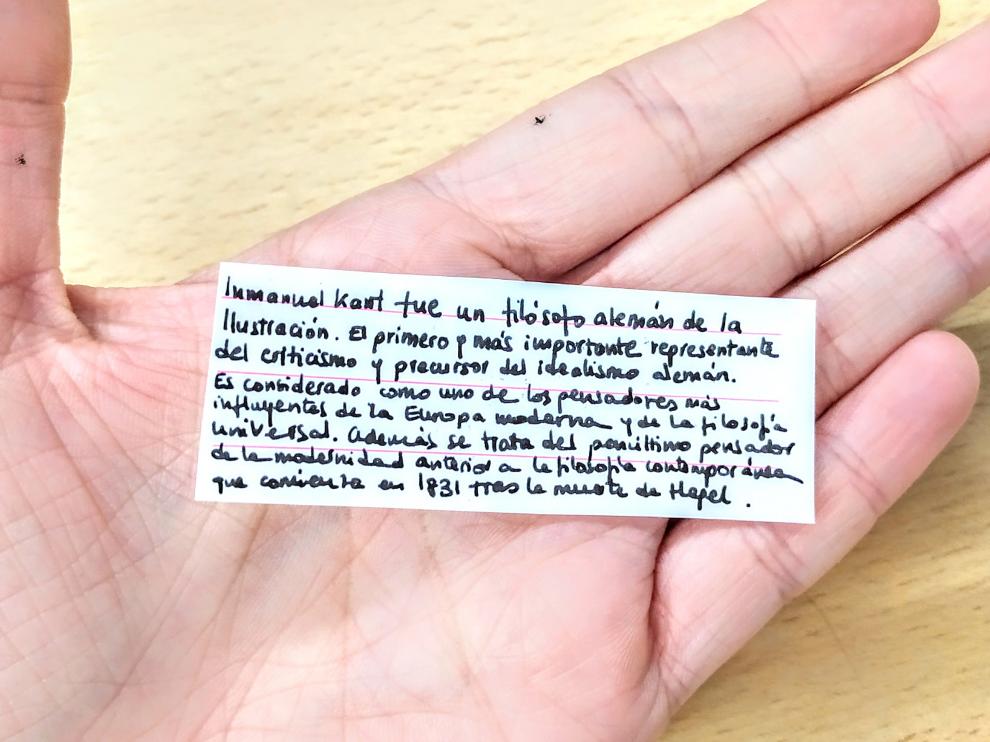 Inmanuel Kant fue un filósofo alemán de la
Ilustración. El primero y más importante representante
del criticismo y precursor del idealismo alemán.
Es considerado como uno de los pensadores más
influyentes de la Europa moderna y de la filosofía
universal. Además se trata del penúltimo pensador
de la modernidad anterior a la filosofía contemporánea
que comienza en 1831 tras la muerte de Hegel.